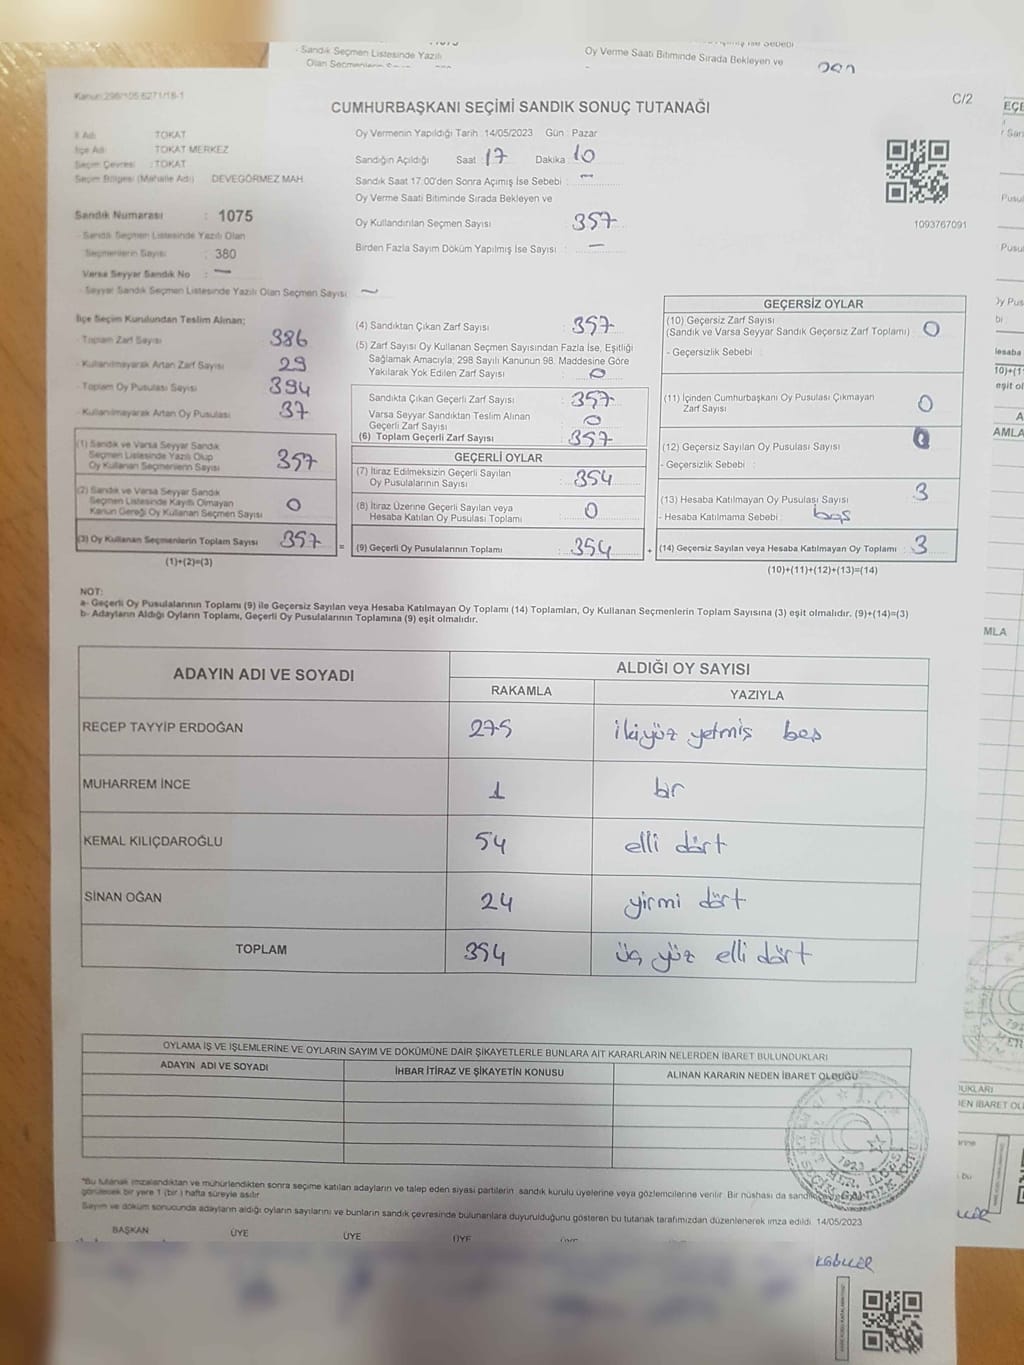 - Sandık Seçmen Listesinde Yazılı
Oy Verme Saati Bitiminde Sırada Bekleyen ve
Kanun:298/105,6271/18-1
C/2
CUMHURBAŞKANI SEÇİMİ SANDIK SONUÇ TUTANAĞI
İl Adı : TOKAT
İlçe Adı : TOKAT MERKEZ
Seçim Çevresi : TOKAT
Seçim Bölgesi (Mahalle Adı) DEVEGÖRMEZ MAH.
Oy Vermenin Yapıldığı Tarih :14/05/2023 Gün : Pazar
Sandığın Açıldığı Saat : 17 Dakika : 10
Sandık Saat 17:00'den Sonra Açımış İse Sebebi : —
Oy Verme Saati Bitiminde Sırada Bekleyen ve
Oy Kullandırılan Seçmen Sayısı : 357
Birden Fazla Sayım Döküm Yapılmış İse Sayısı : —
1093767091
Sandık Numarası : 1075
- Sandık Seçmen Listesinde Yazılı Olan
Seçmenlerin Sayısı : 380
Varsa Seyyar Sandık No : —
- Seyyar Sandık Seçmen Listesinde Yazılı Olan Seçmen Sayısı : —
İlçe Seçim Kurulundan Teslim Alınan;
- Toplam Zarf Sayısı 386
- Kullanılmayarak Artan Zarf Sayısı 29
- Toplam Oy Pusulası Sayısı 394
- Kullanılmayarak Artan Oy Pusulası 37
(1) Sandık ve Varsa Seyyar Sandık
Seçmen Listesinde Yazılı Olup
Oy Kullanan Seçmenlerin Sayısı 357
(2) Sandık ve Varsa Seyyar Sandık
Seçmen Listesinde Kayıtlı Olmayan
Kanun Gereği Oy Kullanan Seçmen Sayısı 0
(3) Oy Kullanan Seçmenlerin Toplam Sayısı 357
(1)+(2)=(3)
(4) Sandıktan Çıkan Zarf Sayısı : 357
(5) Zarf Sayısı Oy Kullanan Seçmen Sayısından Fazla İse, Eşitliği
Sağlamak Amacıyla; 298 Sayılı Kanunun 98. Maddesine Göre
Yakılarak Yok Edilen Zarf Sayısı : 0
Sandıkta Çıkan Geçerli Zarf Sayısı : 357
Varsa Seyyar Sandıktan Teslim Alınan
Geçerli Zarf Sayısı : 0
(6) Toplam Geçerli Zarf Sayısı : 357
GEÇERLİ OYLAR
(7) İtiraz Edilmeksizin Geçerli Sayılan
Oy Pusulalarının Sayısı : 354
(8) İtiraz Üzerine Geçerli Sayılan veya
Hesaba Katılan Oy Pusulası Toplamı : 0
= (9) Geçerli Oy Pusulalarının Toplamı : 354
GEÇERSİZ OYLAR
(10) Geçersiz Zarf Sayısı
(Sandık ve Varsa Seyyar Sandık Geçersiz Zarf Toplamı) : 0
- Geçersizlik Sebebi :
(11) İçinden Cumhurbaşkanı Oy Pusulası Çıkmayan
Zarf Sayısı : 0
(12) Geçersiz Sayılan Oy Pusulası Sayısı :
- Geçersizlik Sebebi :
(13) Hesaba Katılmayan Oy Pusulası Sayısı : 3
- Hesaba Katılmama Sebebi : boş
+ (14) Geçersiz Sayılan veya Hesaba Katılmayan Oy Toplamı : 3
(10)+(11)+(12)+(13)=(14)
NOT:
a- Geçerli Oy Pusulalarının Toplamı (9) ile Geçersiz Sayılan veya Hesaba Katılmayan Oy Toplamı (14) Toplamları, Oy Kullanan Seçmenlerin Toplam Sayısına (3) eşit olmalıdır. (9)+(14)=(3)
b- Adayların Aldığı Oyların Toplamı, Geçerli Oy Pusulalarının Toplamına (9) eşit olmalıdır.
ADAYIN ADI VE SOYADI ALDIĞI OY SAYISI
RAKAMLA YAZIYLA
RECEP TAYYİP ERDOĞAN 275 ikiyüz yetmiş beş
MUHARREM İNCE 1 bir
KEMAL KILIÇDAROĞLU 54 elli dört
SİNAN OĞAN 24 yirmi dört
TOPLAM 354 üç yüz elli dört
OYLAMA İŞ VE İŞLEMLERİNE VE OYLARIN SAYIM VE DÖKÜMÜNE DAİR ŞİKAYETLERLE BUNLARA AİT KARARLARIN NELERDEN İBARET BULUNDUKLARI
ADAYIN ADI VE SOYADI İHBAR İTİRAZ VE ŞİKAYETİN KONUSU ALINAN KARARIN NEDEN İBARET OLDUĞU
T.C.
1923
"Bu tutanak imzalandıktan ve mühürlendikten sonra seçime katılan adayların ve talep eden siyasi partilerin sandık kurulu üyelerine veya gözlemcilerine verilir. Bir nüshası da
görülecek bir yere 1 (bir) hafta süreyle asılır.
Sayım ve döküm sonucunda adayların aldığı oyların sayılarını ve bunların sandık çevresinde bulunanlara duyurulduğunu gösteren bu tutanak tarafımızdan düzenlenerek imza edildi. 14/05/2023
BAŞKAN ÜYE ÜYE ÜYE